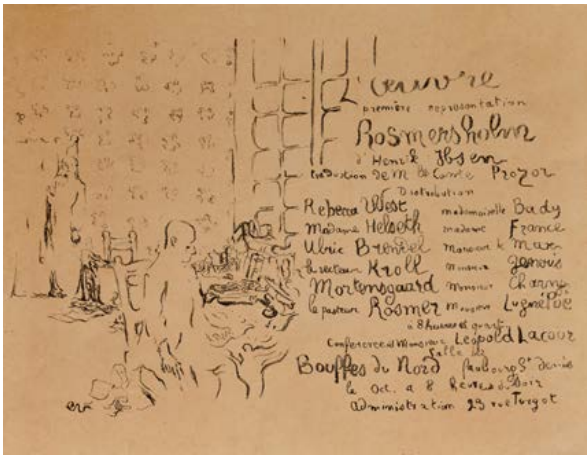 L'Œuvre
première representation
Rosmersholm
d'Henrik Ibsen
traduction de M. le Comte Prozor
Distribution
Rebecca West mademoiselle Bady
Madame Helseth madame France
Ulric Brendel Monsieur de Max
le recteur Kroll Monsieur
Mortensgaard Monsieur Charny
le pasteur Rosmer Monsieur Lugné Poe
à 8 heures et quart
Conference de Monsieur Léopold Lacour
Salle des
Bouffes du Nord faubourg St denis
le Oct. a 8 heures du Soir
administration 23 rue Turgot